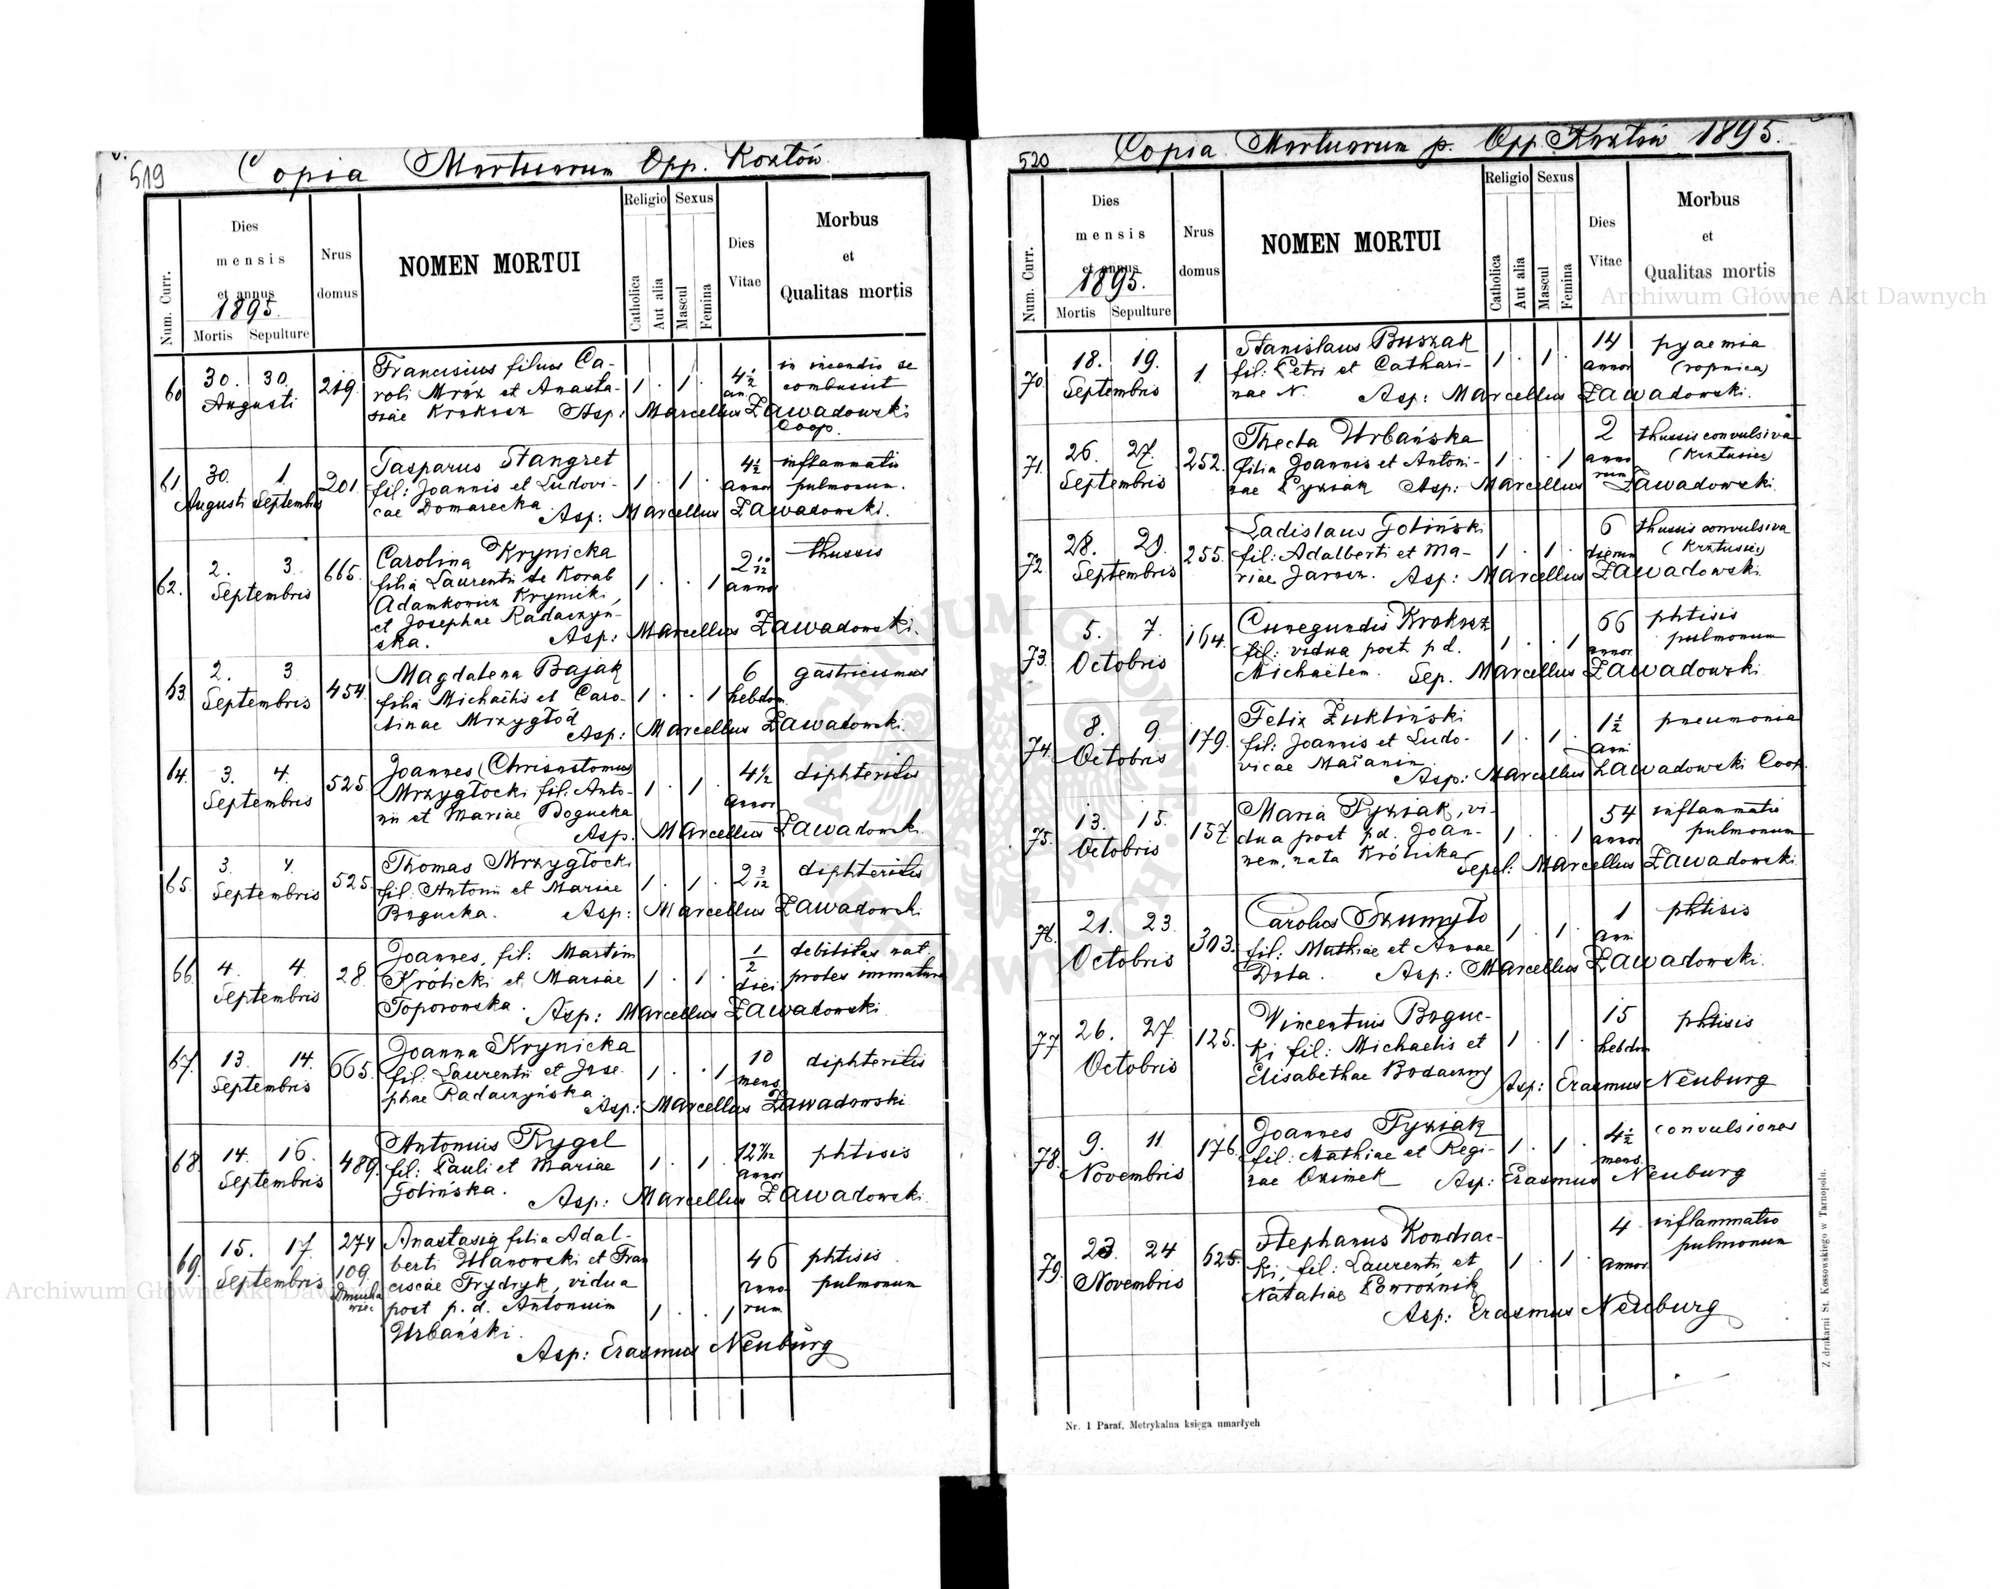 519
Copia Mortuorum Opp. Kozłów.
Num. Curr.
Dies mensis et annus
1895.
Mortis Sepulture
Nrus domus
NOMEN MORTUI
Religio
Catholica
Aut alia
Sexus
Mascul
Femina
Dies Vitae
Morbus
et
Qualitas mortis
60 30. 30. 219. Francisius filius Ca- 1 . 1 . 4½ in incendio se
Augusti roli Mróz et Anasta- an. combusit
siae Krokosz Asp: Marcellus Zawadowski
Coop.
61. 30. 1. 201. Gasparus Stangret 4½ inflammatio
Augusti Septembris fil: Joannis et Ludovi- 1 . 1 . annor pulmonum.
cae Domarecka. Asp: Marcellus Zawadowski.
62. 2. 3. 665. Carolina Krynicka 2 10/12 thussis
Septembris filia Laurentii de Korab 1 . . 1 annor
Adamkowicz Krynicki,
et Josephae Radaczyń-
ska. Asp: Marcellus Zawadowski.
63. 2. 3 454. Magdalena Bajak 6 gastricismus
Septembris filia Michaëlis et Caro- 1 . . 1 hebdom.
linae Mrzygłód
Asp: Marcellus Zawadowski.
64. 3. 4. 525. Joannes Chrisostomus 4½ diphteritis
Septembris Mrzygłocki fil: Anto- 1 . 1 . annor
nii et Mariae Bogucka
Asp. Marcellus Zawadowski.
65. 3. 4. 525. Thomas Mrzygłocki 2 3/12 diphteritis
Septembris fil: Antonii et Mariae 1 . 1 .
Bogucka. Asp: Marcellus Zawadowski
66 4. 4. 28. Joannes, fil: Martini ½ debilitas nat.
Septembris Królicki et Mariae 1 . 1 . diei proles immatura
Toporowska. Asp: Marcellus Zawadowski.
67. 13. 14. 665. Joanna Krynicka 10 diphteritis
Septembris fil: Laurentii et Jose- 1 . . 1 mens.
phae Radaczyńska. Asp: Marcellus Zawadowski
68. 14. 16. 489. Antonius Rygel phtisis
Septembris fil: Pauli et Mariae 1 . 1 . annor
Golińska. Asp: Marcellus Zawadowski.
69. 15. 17. 274 Anastasia filia Adal-
Septembris 109. berti Ulanowski et Fran 46 phtisis
ciscae Frydryk, vidua anno- pulmonum
post p. d. Antonium 1 . . 1 rum.
Urbański.
Asp: Erasmus Neuburg
520
Copia Mortuorum p. Opp. Kozłów 1895.
Num. Curr.
Dies mensis et annus
1895.
Mortis Sepulture
Nrus domus
NOMEN MORTUI
Religio
Catholica
Aut alia
Sexus
Mascul
Femina
Dies Vitae
Morbus
et
Qualitas mortis
70. 18. 19. 1. Stanislaus Buszak 14 pyaemia
Septembris fil: Petri et Cathari- 1 . 1 . annor (ropnica)
nae N. Asp: Marcellus Zawadowski.
71. 26. 27. 252. Thecla Urbańska 2 thussis convulsiva
Septembris filia Joannis et Antoni- 1 . . 1 anno (Krztusiec)
nae Pyziak Asp: Marcellus rum Zawadowski.
72. 28. 29. 255. Ladislaus Goliński 6 thussis convulsiva
Septembris fil: Adalberti et Ma- 1 . 1 . dierum (Krztusiec)
riae Jarosz. Asp: Marcellus Zawadowski.
73. 5. 7. 164. Cunegundis Krokosz 66 phtisis
Octobris fil: vidua post p. d. 1 . . 1 annor. pulmonum
Michaëlem. Sep. Marcellus Zawadowski.
74. 8. 9. 179. Felix Żukliński 1½ pneumonia
Octobris fil: Joannis et Ludo- 1 . 1 . anni
vicae
Asp: Marcellus Zawadowski Coop.
75. 13. 15. 157. Maria Pyziak, vi- 54 inflammatio
Octobris dua post p.d. Joan- 1 . . 1 annor pulmonum
nem, nata Królicka
Sepel: Marcellus Zawadowski.
76. 21. 23. 303. Carolus Szumyło 1 phtisis
Octobris fil: Mathiae et Annae 1 . 1 . anni
Asp: Marcellus Zawadowski.
77 26. 27. 125. Vincentius Boguc- 15 phtisis
Octobris ki fil: Michaelis et 1 . 1 . hebdom
Elisabethae Asp: Erasmus Neuburg
78. 9. 11 176. Joannes Pyziak 4½ convulsiones
Novembris fil: Mathiae et Regi- 1 . 1 . mens.
nae Ozimek Asp: Erasmus Neuburg
79. 23. 24 625. Stephanus Kondrac- 4 inflammatio
Novembris ki, fil: Laurentii et 1 . 1 . annor pulmonum
Nataliae Powroźnik
Asp: Erasmus Neuburg
Nr. 1 Paraf. Metrykalna księga umarłych
Z drukarni St. Kossowskiego w Tarnopolu.
Archiwum Główne Akt Dawnych
Archiwum Główne Akt Dawnych
ARCHIWUM GŁÓWNE AKT DAWNYCH